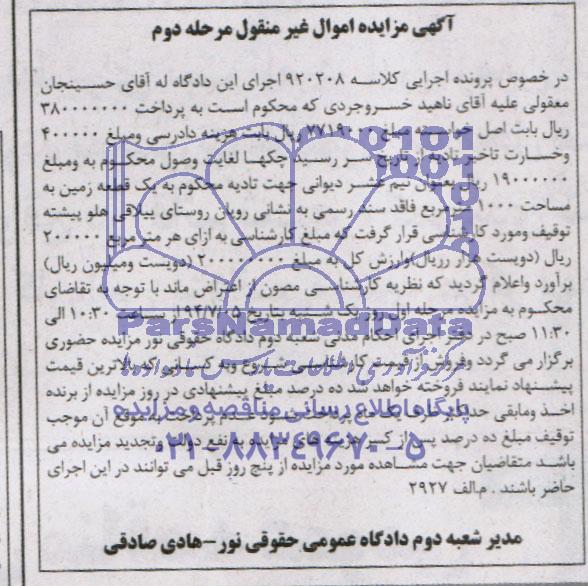 آگهی مزایده اموال غیر منقول مرحله دوم
در خصوص پرونده اجرایی کلاسه ۹۲۰۲۰۸ اجرای این دادگاه له آقای حسینجان
معقولی علیه آقای ناهید خسروجردی که محکوم است به پرداخت ۳۸۰۰۰۰۰۰۰
ریال بابت اصل خواسته مبلغ ۷۷۱۹۰۰۰ ریال بابت هزینه دادرسی ومبلغ ۴۰۰۰۰۰
وخسارت تاخیر تادیه از تاریخ سر رسید چکها لغایت وصول محکوم به ومبلغ
۱۹۰۰۰۰۰۰ ریال بعنوان نیم عشر دیوانی جهت تادیه محکوم به یک قطعه زمین به
مساحت ۱۰۰۰ مترمربع فاقد سند رسمی به نشانی رویان روستای ییلاقی هلو پیشته
توقیف ومورد کارشناسی قرار گرفت که مبلغ کارشناسی به ازای هر متر مربع ۲۰۰۰۰۰
ریال (دویست هزار رریال)وارزش کل به مبلغ ۲۰۰۰۰۰۰۰۰ (دویست ومیلیون ریال)
برآورد واعلام گردید که نظریه کارشناسی مصون از اعتراض ماند با توجه به تقاضای
محکوم به مزایده مرحله اول روز یک شنبه بتاریخ ۹۲/۷/۰۵ از ساعت ۱۰:۳۰ الی
۱۱:۳۰ صبح در دفتر اجرای احکام مدنی شعبه دوم دادگاه حقوقی نور مزایده حضوری
برگزار می گردد وفروش از قیمت کارشناسی شروع وبه کسانی که بالاترین قیمت
پیشنهاد نمایند فروخته خواهد شد ده درصد مبلغ پیشنهادی در روز مزایده از برنده
اخذ ومابقی حداکثر ظرف یک ماه پرداخت شود عدم پرداخت بموقع آن موجب
توقیف مبلغ ده درصد پس از کسر هزینه های مزایده به نفع دولت وتجدید مزایده می
باشد متقاضیان جهت مشاهده مورد مزایده از پنج روز قبل می توانند در این اجرای
حاضر باشند . م.الف ۲۹۲۷
مدیر شعبه دوم دادگاه عمومی حقوقی نور-هادی صادقی
ParsNamadData
پایگاه اطلاع رسانی مناقصه و مزایده
۰۲۱-۸۸۳۴۹۶۷۰-۵